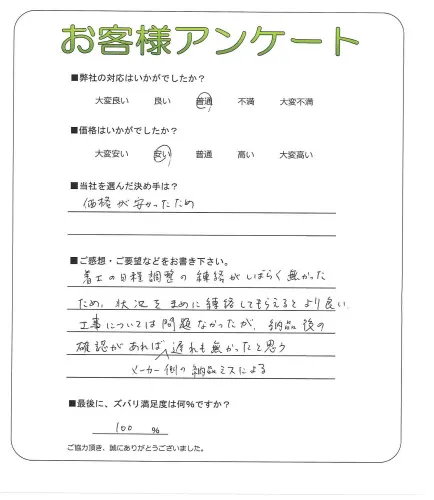 お客様アンケート
■弊社の対応はいかがでしたか？
大変良い 良い 普通 不満 大変不満
■価格はいかがでしたか？
大変安い 安い 普通 高い 大変高い
■当社を選んだ決め手は？
価格が安かったため
■ご感想・ご要望などをお書き下さい。
着工の日程調整の練絡がしばらく無かった
ため、状況をまめに練絡してもらえるとより良い
工事については問題なかったが、納品後の
確認があれば遅れも無かったと思う
メーカー側の納品ミスによる
■最後に、ズバリ満足度は何％ですか？
100 ％
ご協力頂き、誠にありがとうございました。